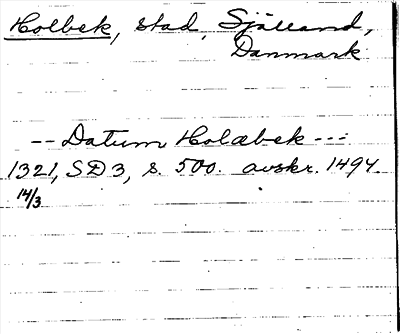 Holbek, stad, Själland,
Danmark
-- Datum Holæbek ---
1321, SD 3, s. 500. avskr. 1494
14/3